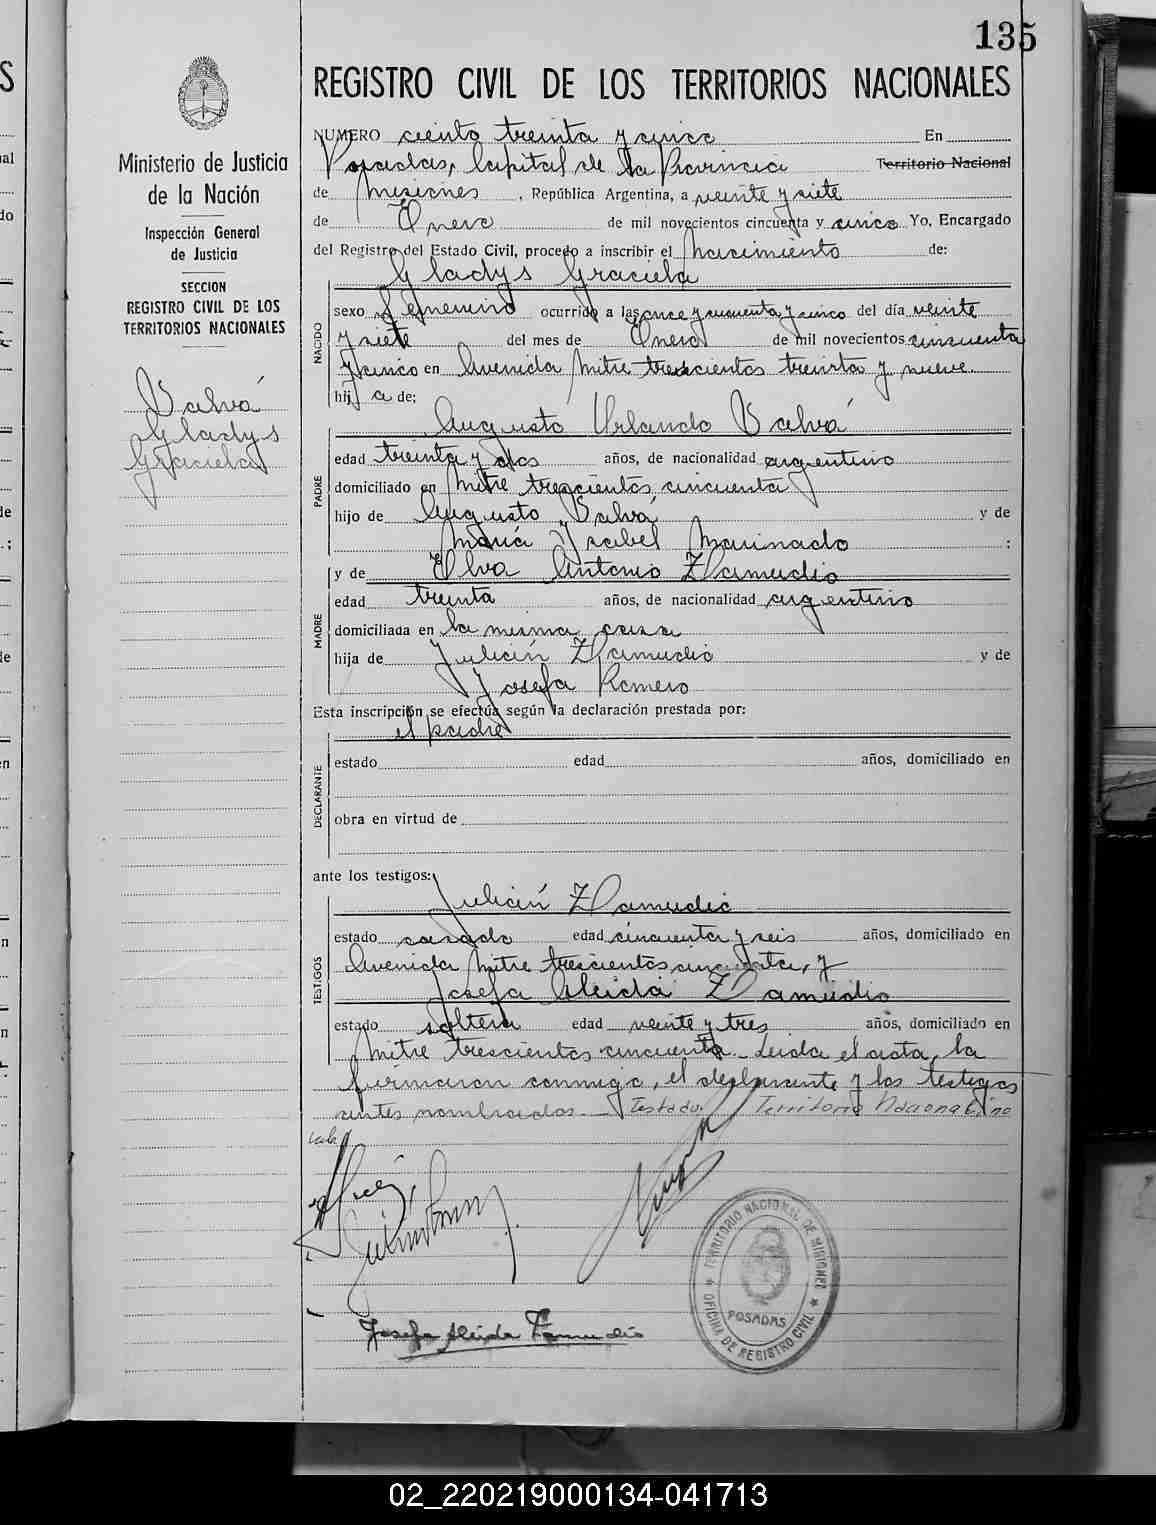 135
REGISTRO CIVIL DE LOS TERRITORIOS NACIONALES
Ministerio de Justicia
de la Nación
Inspección General
de Justicia
SECCION
REGISTRO CIVIL DE LOS
TERRITORIOS NACIONALES
Balvá
Gladys
Graciela
NUMERO ciento treinta y cinco En
Posadas, Capital de la Provincia Territorio Nacional
de Misiones, República Argentina, a veinte y siete
de Enero de mil novecientos cincuenta y cinco Yo, Encargado
del Registro del Estado Civil, procedo a inscribir el Nacimiento de:
Gladys Graciela
NACIDO
sexo femenino ocurrido a las once y cincuenta y cinco del día veinte
y siete del mes de Enero de mil novecientos cincuenta
y cinco en Avenida Mitre trescientos treinta y nueve.
hija de:
Augusto Orlando Balvá
PADRE
edad treinta y dos años, de nacionalidad argentino
domiciliado en Mitre trescientos cincuenta
hijo de Augusto Balvá y de
María Ysabel Marinado :
y de Elva Antonio Zamudio
MADRE
edad treinta años, de nacionalidad argentino
domiciliada en la misma casa
hija de Julián Zamudio y de
Josefa Romero
Esta inscripción se efectúa según la declaración prestada por:
el padre
DECLARANTE
estado edad años, domiciliado en
obra en virtud de
ante los testigos:
Julián Zamudio
TESTIGOS
estado casado edad cincuenta y seis años, domiciliado en
Avenida Mitre trescientos cincuenta, y
Josefa Aleida Zamudio
estado soltera edad veinte y tres años, domiciliado en
Mitre trescientos cincuenta. Leida el acta, la
firmaron conmigo, el declarante y los testigos
antes nombrados. Testado: Territorio Nacional: no
vale
Josefa Aleida Zamudio
TERRITORIO NACIONAL DE MISIONES
OFICINA DE REGISTRO CIVIL
POSADAS
02_220219000134-041713